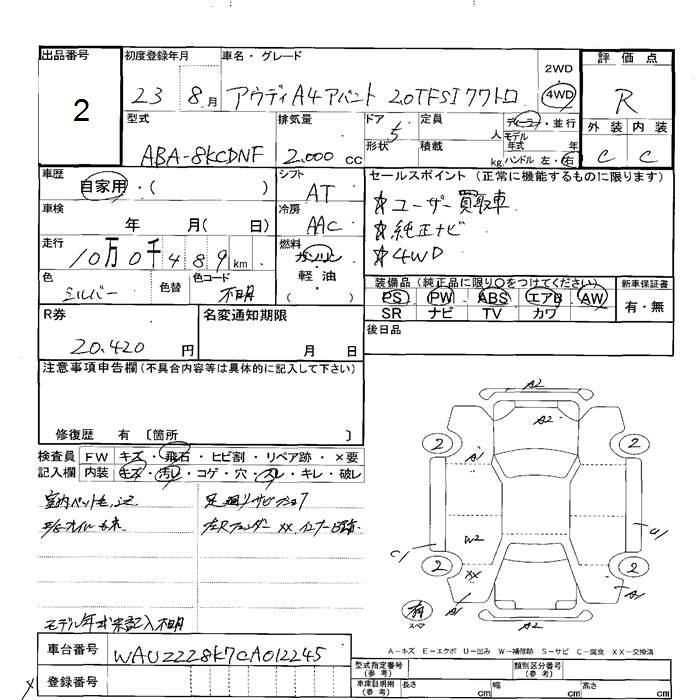 出品番号
2
初度登録年月
23 8月
車名・グレード
アウディA4アバント 2.0TFSIクワトロ
2WD
4WD
評価点
R
型式
ABA-8KCDNF
排気量
2.000 cc
ドア
5
定員
人
形状
積載
kg
ディーラー・並行
モデル
年式 年
ハンドル 左・右
外装 内装
C C
車歴
自家用・( )
シフト
AT
車検
年 月( 日)
冷房
AAC
走行
10万0千489km
燃料
ガソリン
軽・油
色
シルバー
色替
色コード
不明
セールスポイント (正常に機能するものに限ります)
☆ユーザー買取車
☆純正ナビ
☆4WD
装備品 (純正品に限り○をつけてください)
PS PW ABS エアB AW
SR ナビ TV カワ
新車保証書
有・無
後日品
R券
20.420 円
名変通知期限
月 日
注意事項申告欄(不具合内容等は具体的に記入して下さい)
修復歴 有 〔箇所 〕
検査員
記入欄
FW キズ・飛石・ヒビ割・リペア跡・×要
内装 キズ・汚れ・コゲ・穴・スレ・キレ・破レ
室内ペット毛
足廻りサビ
モデル年式未記入不明
A2
A2
2
2
A1
W2
XX
2
2
C1
A1
有
スペア
A-キズ E-エクボ U-凹み W-補修跡 S-サビ C-腐食 XX-交換済
車台番号
WAUZZZ8K7CA012245
登録番号
型式指定番号
(参考)
類別区分番号
(参考)
車庫証明用
(参考)
長さ cm
幅 cm
高さ cm